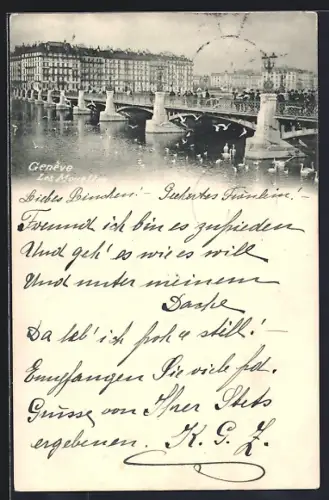 Genève
Les Mouettes
Liebes Linchen! – Geehrtes Fräulein! –
Freund ich bin es zufrieden
Und geh' es wie es will
Und unter meinem
Dache
Da leb' ich froh u still! –
Empfangen Sie viele frd.
Grüsse von Ihrer Stets
ergebenen. K. G. Z.